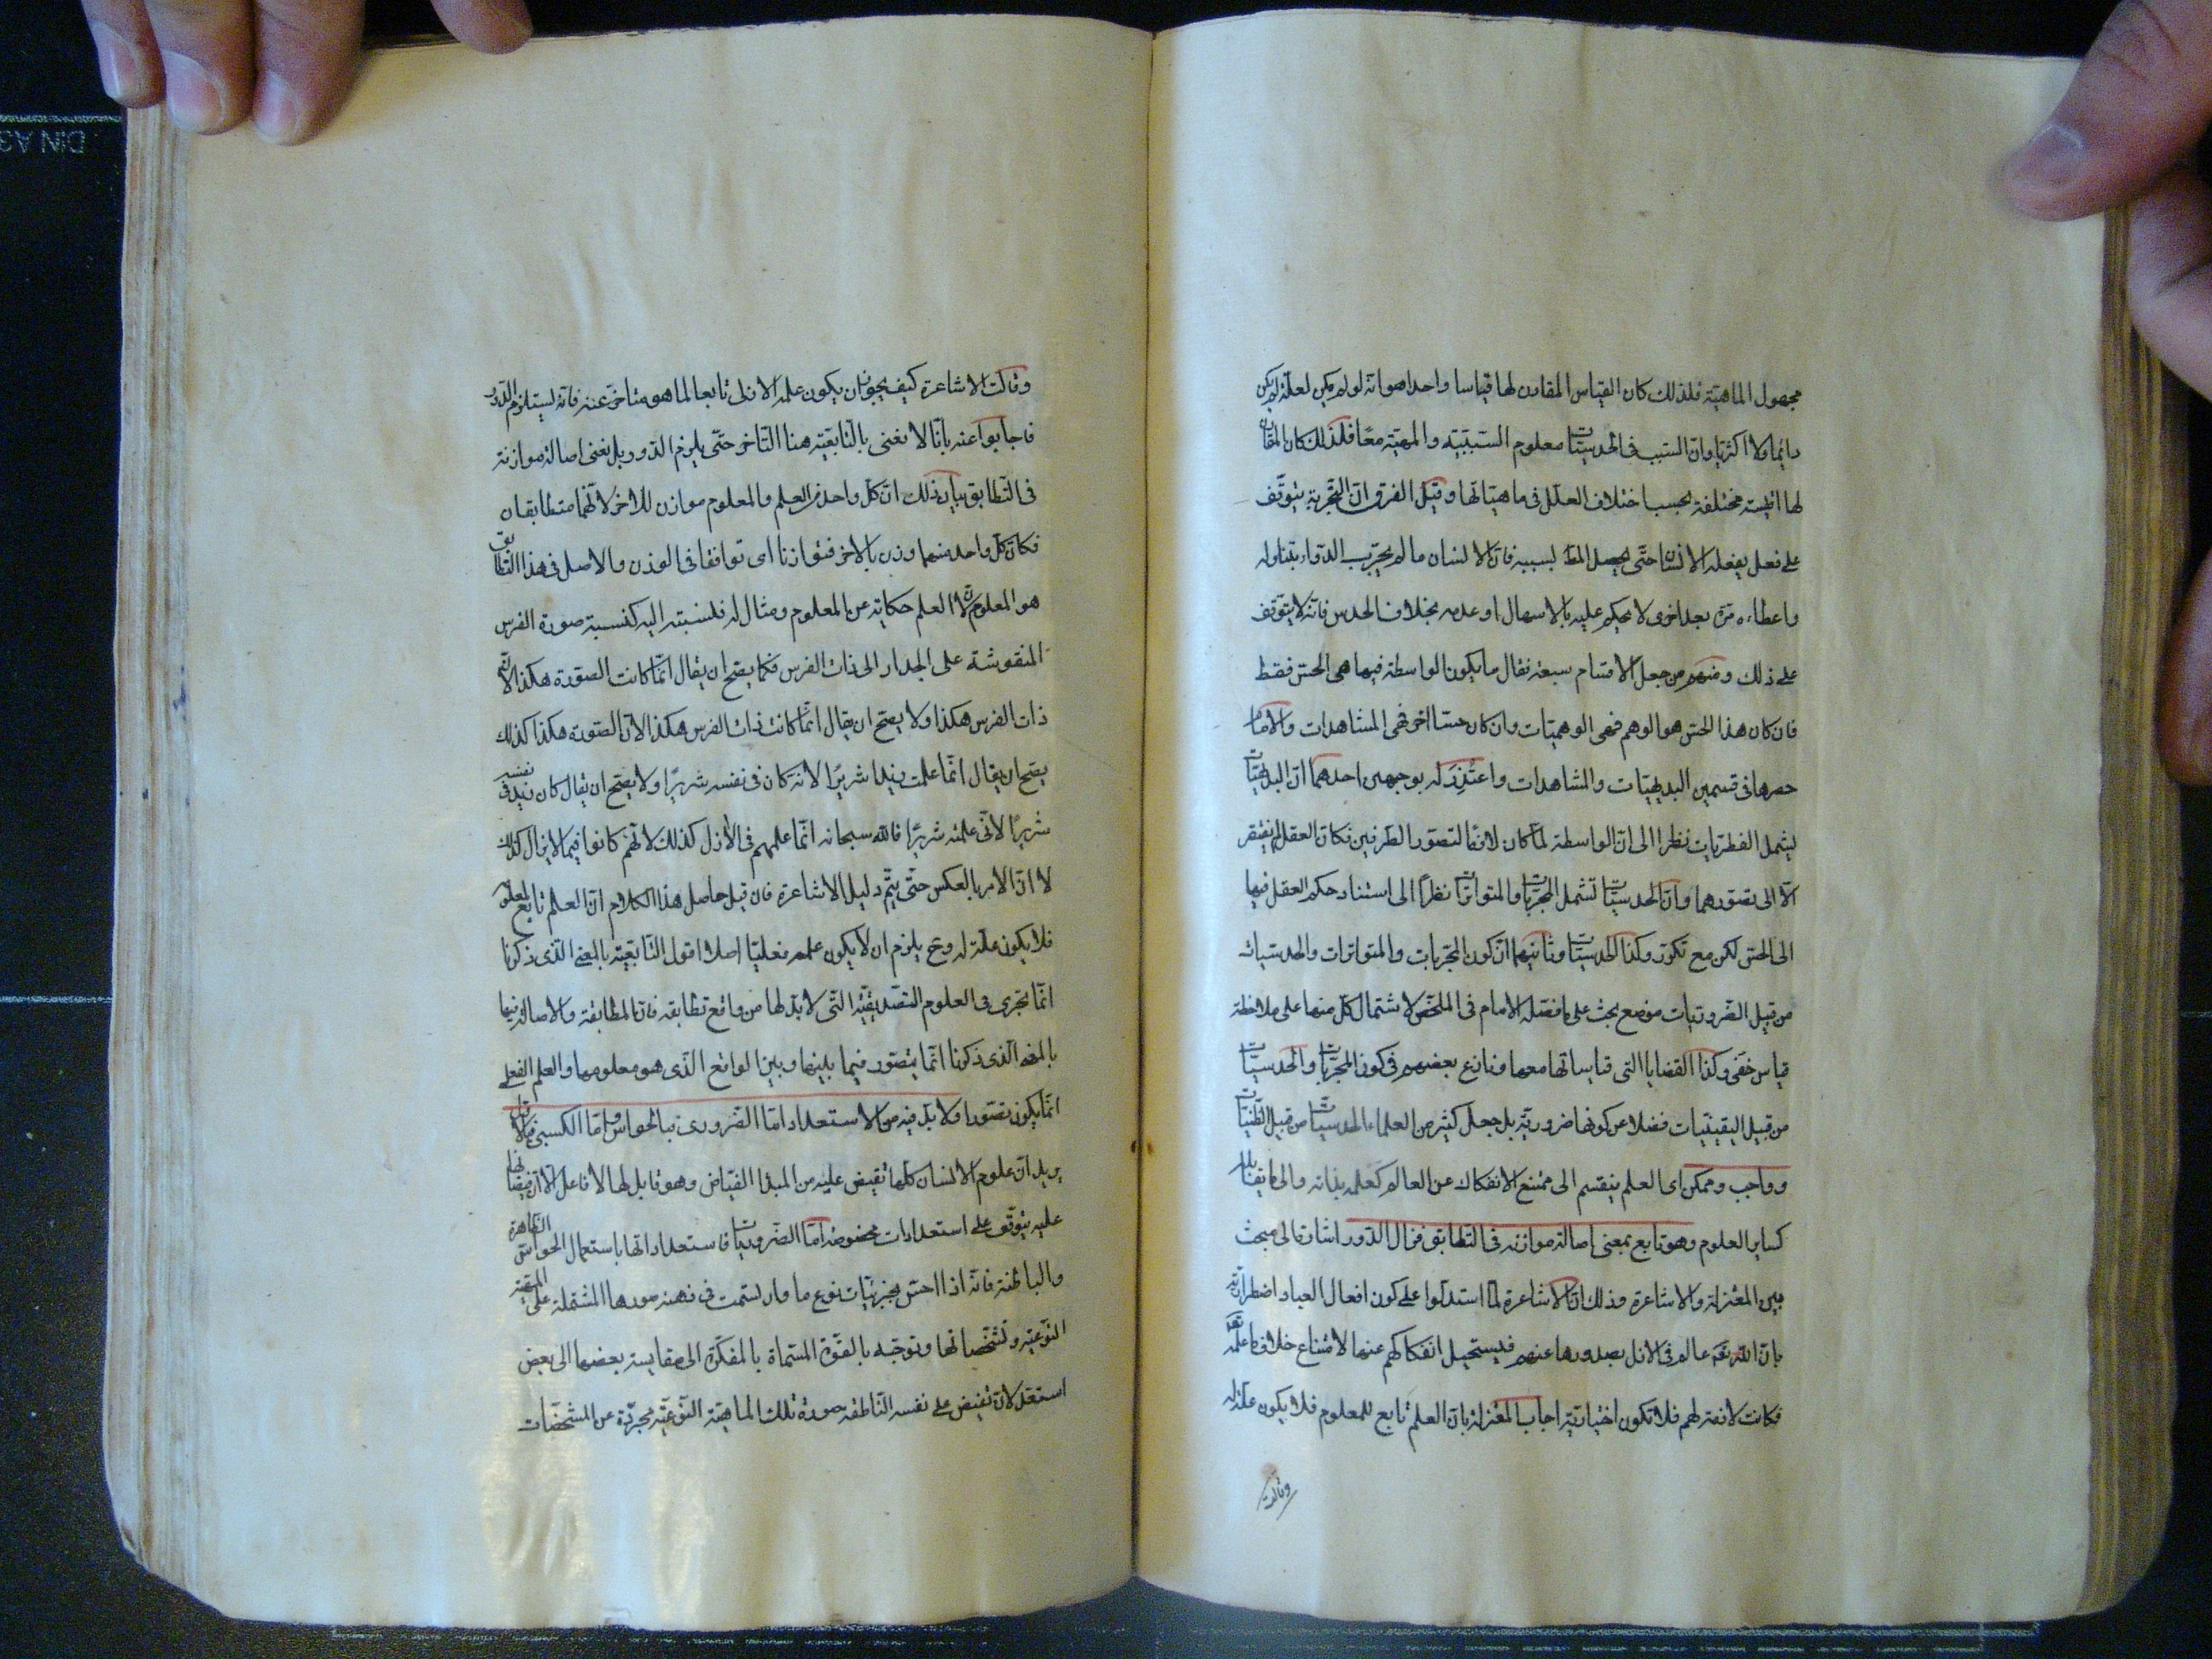 مجهول الماهية فلذلك كان القياس المقارن لها قياسا واحدا هو انه لو لم يكن لعلة لم يكن
دائما ولا اكثريا وان السبب فى الحدسيات معلوم السببية والمهية معا فلذلك كان المقارن
لها اقيسة مختلفة بحسب اختلاف العلل فى ماهياتها وقيل الفرق ان التجربة يتوقف
على فعل يفعله الانسان حتى يحصل المط بسببه فان الانسان ما لم يجرب الدواء بتناوله
واعطاءه مرة بعد اخرى لا يحكم عليه بالاسهال او عدمه بخلاف الحدس فانه لا يتوقف
على ذلك ومنهم من جعل الاقسام سبعة فقال ما يكون الواسطة فيها هى الحس فقط
فان كان هذا الحس هو الوهم فهى الوهميات وان كان حسا اخر فهى المشاهدات والامام
حصرها فى قسمين البديهيات والمشاهدات واعتذر له بوجهين احدهما ان البديهيات
يشمل الفطريات نظرا الى ان الواسطة لما كان لازما لتصور الطرفين فكان العقل لم يفتقر
الا الى تصورهما وان الحدسيات تشمل المجربات والمتواترات نظرا الى استناد حكم العقل فيها
الى الحس لكن مع تكرر وكذا الحدسيات وثانيهما ان كون المجربات والمتواترات والحدسيات
من قبيل الضروريات موضع بحث على ما فصله الامام فى الملخص لاشتمال كل منها على ملاحظة
قياس خفى وكذا القضايا التى قياساتها معها ونازع بعضهم فى كون المجربات والحدسيات
من قبيل اليقينيات فضلا عن كونها ضرورية بل جعل كثير من العلماء الحدسيات من قبيل الظنيات
وواجب وممكن اى العلم ينقسم الى ممتنع الانفكاك عن العالم كعلمه بذاته والى ما يقابله
كساير العلوم وهو تابع بمعنى اصالة موازنه فى التطابق فزال الدور اشارة الى مبحث
بين المعتزلة والاشاعرة وذلك ان الاشاعرة لما استدلوا على كون افعال العباد اضطرارية
بان الله تعه عالم فى الازل بصدورها عنهم فيستحيل انفكاكهم عنها لامتناع خلاف ما علمه تعه
فكانت لازمة لهم فلا تكون اختيارية اجاب المعتزلة بان العلم تابع للمعلوم فلا يكون علة له
وقالت
وقالت الاشاعرة كيف يجوز ان يكون علمه الازلى تابعا لما هو متاخر عنه فانه يستلزم الدور
فاجابوا عنه بانا لا نعنى بالتابعية هنا التاخر حتى يلزم الدور بل نعنى اصالة موازنة
فى التطابق بيان ذلك ان كل واحد من العلم والمعلوم موازن للاخر لانهما متطابقان
فكان كل واحد منهما وزن بالاخر فتوازنا اى توافقا فى الوزن والاصل فى هذا التطابق
هو المعلوم لان العلم حكاية عن المعلوم ومثال له فنسبته اليه كنسبة صورة الفرس
المنقوشة على الجدار الى ذات الفرس فكما يصح ان يقال انما كانت الصورة هكذا لان
ذات الفرس هكذا ولا يصح ان يقال انما كانت ذات الفرس هكذا لان الصورة هكذا كذلك
يصح ان يقال انما علمت زيدا شريرا لانه كان فى نفسه شريرا ولا يصح ان يقال كان زيد فى نفسه
شريرا لانى علمته شريرا فالله سبحانه انما علمهم فى الازل كذلك لانهم كانوا فيما لا يزال كذلك
لا ان الامر بالعكس حتى يتم دليل الاشاعرة فان قيل حاصل هذا الكلام ان العلم تابع للمعلوم
فلا يكون علة له وح يلزم ان لا يكون علمه فعليا اصلا اقول التابعية بالمعنى الذى ذكرنا
انما تجرى فى العلوم التصديقية التى لا بد لها من واقع تطابقه فان المطابقة والاصالة فيها
بالمعنى الذى ذكرنا انما يتصور فيما بينها وبين الواقع الذى هو معلومها والعلم الفعلى
انما يكون تصورا ولا بد فيه من الاستعداد اما الضرورى فبالحواس واما الكسبى فبالاول
يريد ان علوم الانسان كلها تفيض عليه من المبدا الفياض وهو قابل لها لا فاعل الا ان فيضانها
عليه يتوقف على استعدادات مخصوصة اما الضروريات فاستعداداتها باستعمال الحواس الظاهرة
والباطنة فانه اذا احس بجزئيات نوع ما وارتسمت فى ذهنه صورها المشتملة على المهية
النوعية وتشخصاتها وتوجه بالقوة المسماة بالمفكرة الى مقايسة بعضها الى بعض
استعد لان تفيض على نفسه الناطقة صورة تلك الماهية النوعية مجردة عن المشخصات